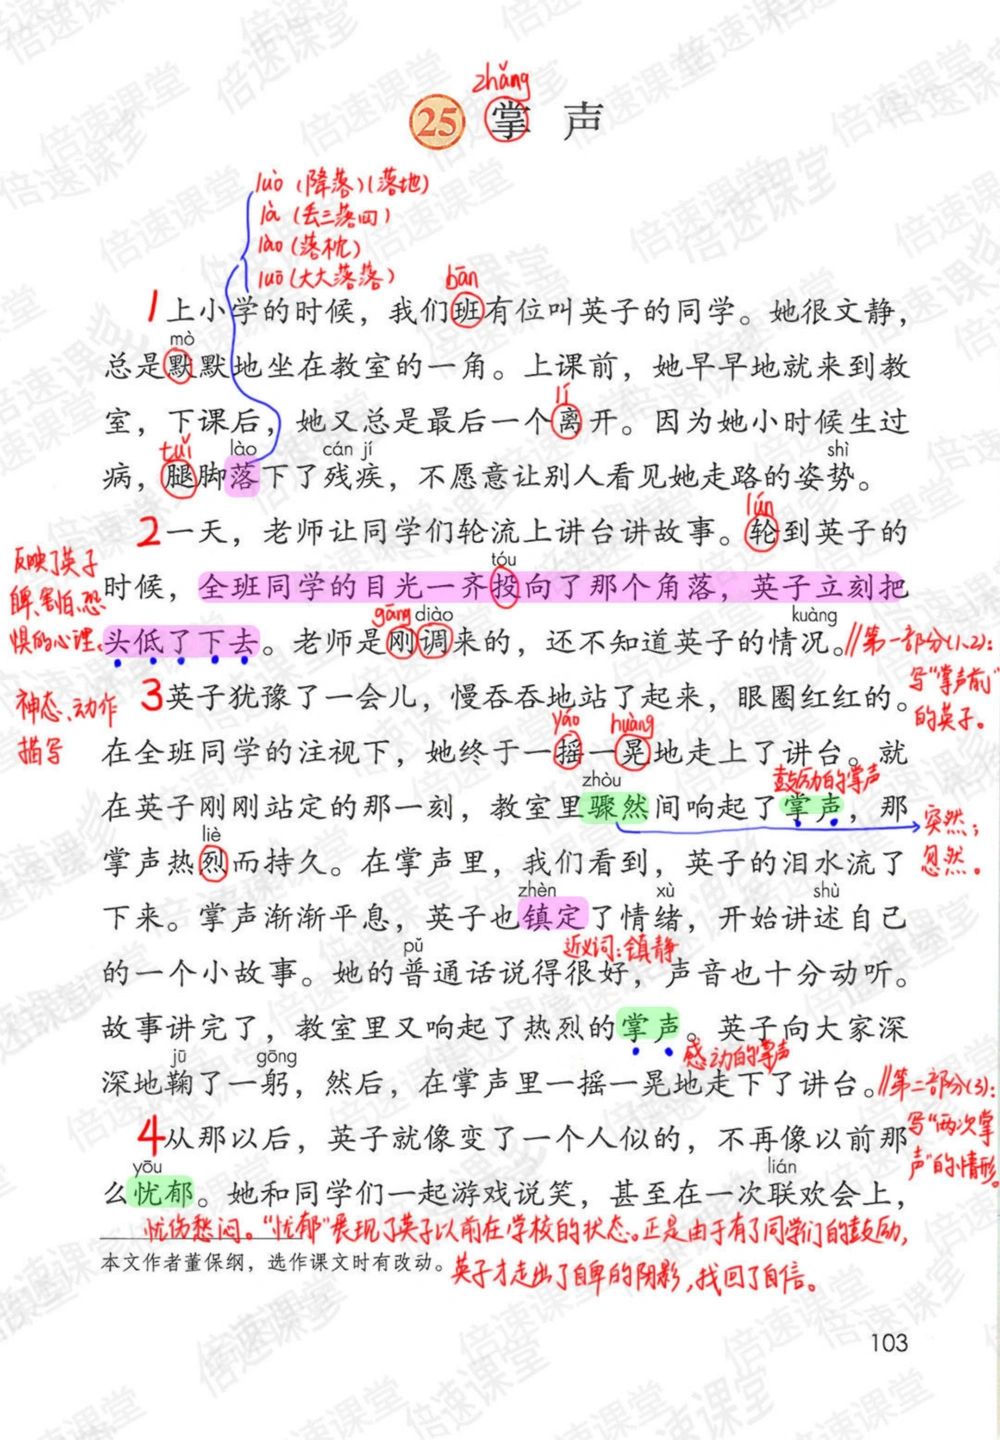 zhǎng
25 掌声
luò (降落)(落地)
là (丢三落四)
lào (落枕)
luō (大大落落)
bān
1上小学的时候，我们班有位叫英子的同学。她很文静，
mò
总是默默地坐在教室的一角。上课前，她早早地就来到教
lí
室，下课后，她又总是最后一个离开。因为她小时候生过
tuǐ lào cán jí shì
病，腿脚落下了残疾，不愿意让别人看见她走路的姿势。
lún
2一天，老师让同学们轮流上讲台讲故事。轮到英子的
tóu
时候，全班同学的目光一齐投向了那个角落，英子立刻把
gāng diào kuàng
头低了下去。老师是刚调来的，还不知道英子的情况。
反映了英子
自卑、害怕、恐
惧的心理。
第一部分(1、2)：
写“掌声前”
的英子。
3英子犹豫了一会儿，慢吞吞地站了起来，眼圈红红的。
神态、动作
描写
yáo huàng
在全班同学的注视下，她终于一摇一晃地走上了讲台。就
zhòu 鼓励的掌声
在英子刚刚站定的那一刻，教室里骤然间响起了掌声，那
突然；
忽然。
liè
掌声热烈而持久。在掌声里，我们看到，英子的泪水流了
zhèn xù shù
下来。掌声渐渐平息，英子也镇定了情绪，开始讲述自己
pǔ 近义词：镇静
的一个小故事。她的普通话说得很好，声音也十分动听。
故事讲完了，教室里又响起了热烈的掌声。英子向大家深
jū gōng 感动的掌声
深地鞠了一躬，然后，在掌声里一摇一晃地走下了讲台。
第二部分(3)：
写“两次掌
声”的情形。
4从那以后，英子就像变了一个人似的，不再像以前那
yōu lián
么忧郁。她和同学们一起游戏说笑，甚至在一次联欢会上，
忧伤愁闷。“忧郁”展现了英子以前在学校的状态。正是由于有了同学们的鼓励，
英子才走出了自卑的阴影，找回了自信。
本文作者董保纲，选作课文时有改动。
103
倍速课堂